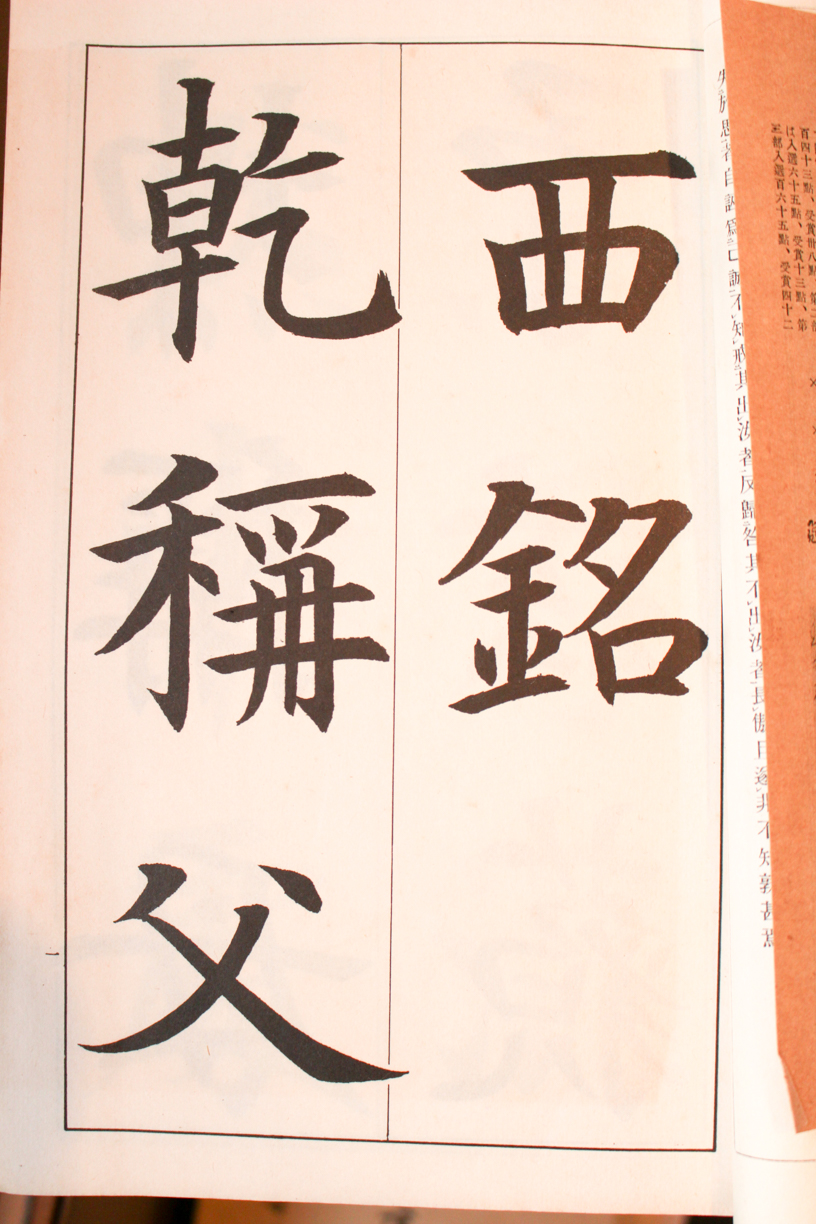 百四十三點、受賞卅八點、第二部
は入選六十五點、受賞十三點、第
三部入選百六十五點、受賞四十二
失於思者自誣爲己誠不知戒其出汝者反歸咎其不出汝者長傲且遂非不知孰甚焉
西銘
乾稱父
一